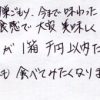 豚ごもり、今まで味わった
食感で大変美味しく
が1箱千円以内た
も食べてみたくなりま